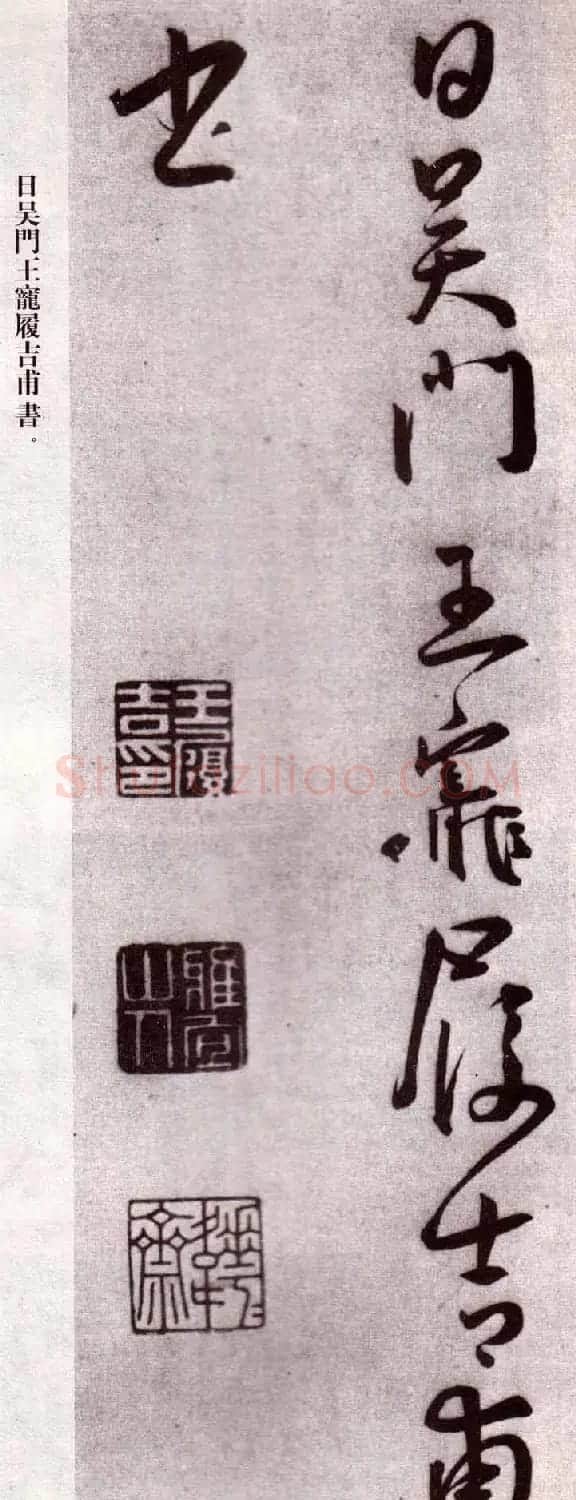 日吴門王寵履吉甫
书
王履吉印
雅宜山人
日吴門王寵履吉甫書。
Shufaziliao.COM